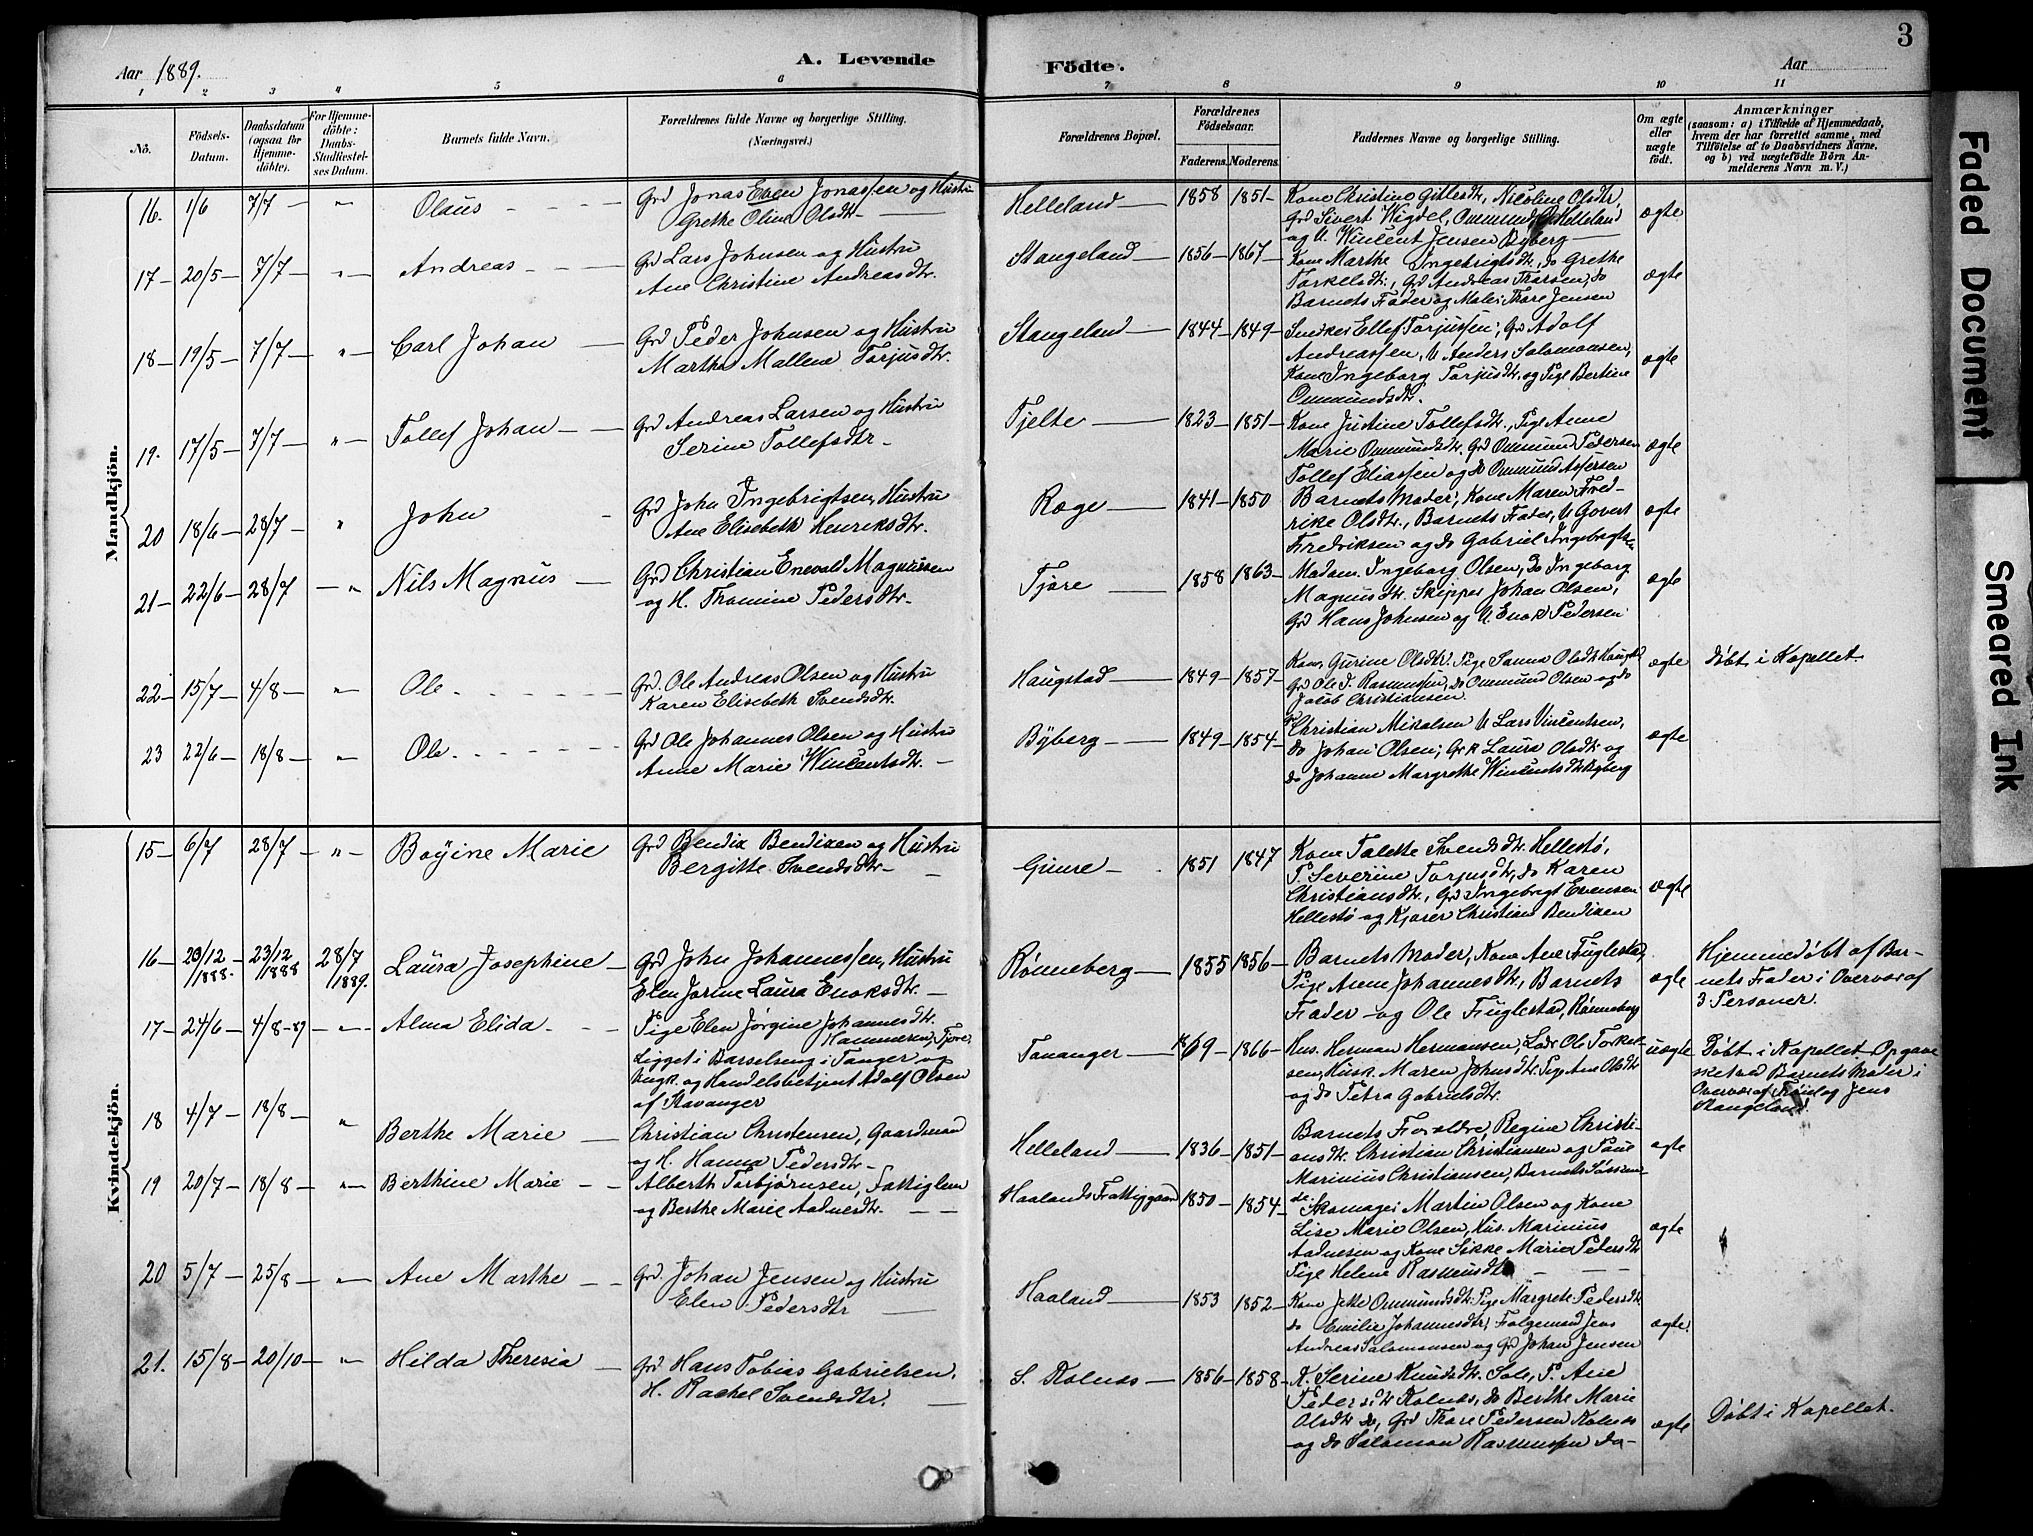 3
Aar 1889.
A. Levende
Födte.
Aar
1 2 3 4 5 6 7 8 9 10 11
No.
Födsels-Datum.
Daabsdatum (ogsaa for Hjemme-döbte).
For Hjemme-döbte: Daabs-Stadfæstel-ses Datum.
Barnets fulde Navn.
Forældrenes fulde Navne og borgerlige Stilling. (Næringsvei.)
Forældrenes Bopæl.
Forældrenes Födselsaar.
Faderens. Moderens.
Faddernes Navne og borgerlige Stilling.
Om ægte eller uægte födt.
Anmærkninger
(saasom: a) i Tilfælde af Hjemmedaab,
hvem der har forrettet samme, med
Tilföielse af to Daabsvidners Navne,
og b) ved uægtefödte Börn An-
melderens Navn m. V.)
Mandkjön.
16. 1/6 7/7 — " Olaus Grd Jonas Even Jonassen og Hustru
Grethe Oline Olsdtr. —
Helleland — 1858 1851 — Kone Christine Gitlesdtr, Nicoline Olsdtr,
Grd Sivert Wigdel, Ommund Helleland
og U. Wincent Jensen Byberg — ægte
17 — 20/5 — 7/7 — " Andreas Grd Lars Johnsen og Hustru
Ane Christine Andreasdtr.
Stangeland — 1856 — 1867 — Kone Marthe Ingebrigtsdtr, do Grethe
Torkelsdtr., Grd Andreas Thorsen, do
Barnets Fader og Maler Thore Jensen ægte
18 — 19/5 — 7/7 — " Carl Johan — Grd Peder Johnsen og Hustru
Marthe Mallene Torjusdtr.
Stangeland — 1844 — 1849 — Snedker Ellef Torjussen, Grd Adolf
Andreassen, U Anders Salomonsen,
Kone Ingeborg Torjusdtr. og Pige Bertine
Ommundsdtr. ægte
19. 17/5 — 7/7 — " — Tollef Johan — Grd Andreas Larsen og Hustru
Serine Tollefsdtr —
Tjelte — 1823 — 1851 — Kone Justine Tollefsdtr., Pige Anne
Marie Ommundsdtr. Grd Ommund Pedersen
Tollef Eliassen og do Ommund Assersen ægte
20 18/6 — 28/7 — " John Grd John Ingebrigtsen, Hustru
Ane Elisebeth Henriksdtr.
Ræge — 1841 — 1850 Barnets Moder, Kone Maren Fred-
rike Olsdtr., Barnets Fader, U Govert
Fredriksen og do Gabriel Ingebrigtsen ægte
21 — 22/6 — 28/7 — " Nils Magnus — Grd Christian Enevald Magnussen
og H. Thomine Pedersdtr.
Tjøre — 1858 1863 — Madam Ingeborg Olsen, do Ingeborg
Magnusdtr. Skipper Johan Olsen,
Grd Hans Johnsen og U. Enok Pedersen ægte
22 — 15/7 — 4/8 — " Ole Grd. Ole Andreas Olsen og Hustru
Karen Elisebeth Svendsdtr.
Haugstad 1849 — 1857 — Kone Gurine Olsdtr. Pige Sanna Olsdtr Haugstad
Grd Ole T. Rasmussen, do Ommund Olsen og do
Jacob Christiansen ægte Døbt i Kapellet.
23 22/6 — 18/8 — " Ole Grd Ole Johannes Olsen og Hustru
Anne Marie Wincentsdtr. —
Byberg — 1849 — 1854 — Christian Mikalsen U Lars Vincentsen,
do Johan Olsen; Grk Laura Olsdtr og
do Johanne Margrethe Wincentsdtr Byberg ægte
Kvindekjön.
15 — 6/7 28/7 — " — Boyine Marie Grd Bendix Bendixen og Hustru
Bergitte Svendsdtr —
Gimre — 1851 1847 Kone Talette Svendsdtr. Hellestø,
P. Severine Torjusdtr, do Karen
Christiansdtr., Grd Ingebregt Evensen
Hellestø og Kjører Christian Bendixen ægte
16 — 20/12 1888. 23/12 1888 28/7 1889. Laura Josephine — Grd John Johannessen, Hustru
Elen Jorine Laura Enoksdtr. —
Rønneberg — 1855 1856 — Barnets Moder, Kone Ane Fuglestad,
Pige Anne Johannesdtr., Barnets
Fader — og Ole Fuglestad, Rønneberg ægte
Hjemmedøbt af Bar-
nets Fader i Overvær af
3 Personer.
17 — 24/6 — 4/8-89 — " — Alma Elida Pige Elen Jørgine Johannesdtr.
Hammersen, Tjøre,
Ligget i Barselseng i Tanger og
Ungk. og Handelsbetjent Adolf Olsen
af Stavanger
Tananger — 1869 — 1866 — Hus. Herman Hermansen, Lods Ole Torkel-
sen, Husk. Maren Johnsdtr. Pige Ane Olsdtr
og do Petra Gabrielsdtr. uægte
Døbt i Kapellet. Opgave
sket ved Barnets Moder i
Overvær af og Jens
Stangeland.
18 4/7 — 18/8 — " Berthe Marie — Christian Christensen, Gaardmand
og H. Hanna Pedersdtr —
Helleland — 1836 — 1851 — Barnets Forældre, Regine Christi-
ansdtr. Christian Christiansen og
Marinius Christiansen, Barnets Søsken-
de. ægte
19 20/7 — 18/8 — " Berthine Marie — Alberth Torbjørnsen, Fattiglem
og Berthe Marie Aadnesdtr. —
Haalands Fattiggaard 1850 — 1854 — Skomager Martin Olsen og Kone
Lise Marie Olsen, Hus. Marinius
Aadnesen og Kone Sikke Marie Pedersdtr
Pige Helene Rasmusdtr — ægte
20 5/7 — 25/8 — " Ane Marthe — Grd. Johan Jensen og Hustru
Elen Pedersdtr —
Haaland — 1853 1852 — Kone Jette Ommundsdtr. Pige Margrete Pedersdtr
do Emilie Johannesdtr, Følgemand Jens
Andreas Salomonsen og Grd Johan Jensen ægte
21. 15/8 — 20/10 — " Hilda Theresia — Grd Hans Tobias Gabrielsen,
H. Rachel Svendsdtr. —
S. Kolnes — 1856 — 1858 — K. Serine Knudsdtr. Sole, P. Ane
Pedersdtr Kolnes, do Berthe Marie
Olsdtr do, Grd Thore Pedersen Kolnes
og do Salomon Rasmussen do — ægte Døbt i Kapellet.
Faded Document
Smeared Ink